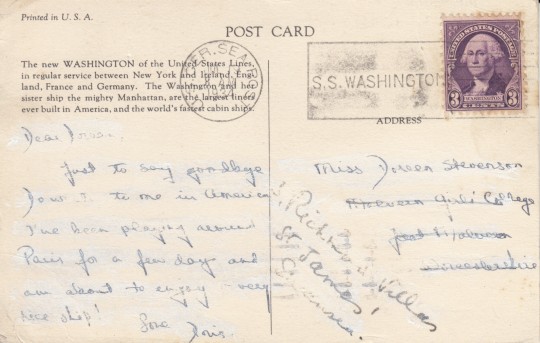 Printed in U. S. A.
POST CARD
The new WASHINGTON of the United States Lines,
in regular service between New York and Ireland, Eng-
land, France and Germany. The Washington and her
sister ship the mighty Manhattan, are the largest liners
ever built in America, and the world's fastest cabin ships.
S.S. WASHINGTON
UNITED STATES POSTAGE
WASHINGTON
3 CENTS 3
ADDRESS
Dear
Just to say goodbye
to me in America
I've been playing around
Paris for a few day and
am about to enjoy very
nice ship!
Love
Doris.
Miss Doreen Stevenson
Malvern Girls' College
Great Malvern
Worcestershire
Richmond Villas
St. James'
Swansea.